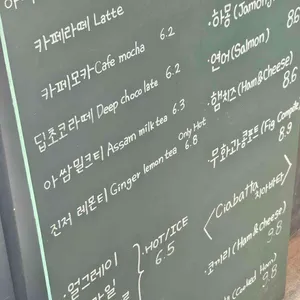 카페라떼 Latte
카페모카 Cafe mocha 6.2
딥초코라떼 Deep chocolate 6.2
아쌈밀크티 Assam milk tea 6.3
Only Hot
진저 레몬티 Ginger lemon tea 6.8
·얼그레이
HOT/ICE
6.5
·하몽 (Jamong
8.6
·연어 (Salmon)
8.6
·햄치즈 (Ham&cheese)
8.6
·무화과콩포트 (Fig Compote
8.9
<Ciabatta 치아바타
(Ham&cheese)
9.8
9.8